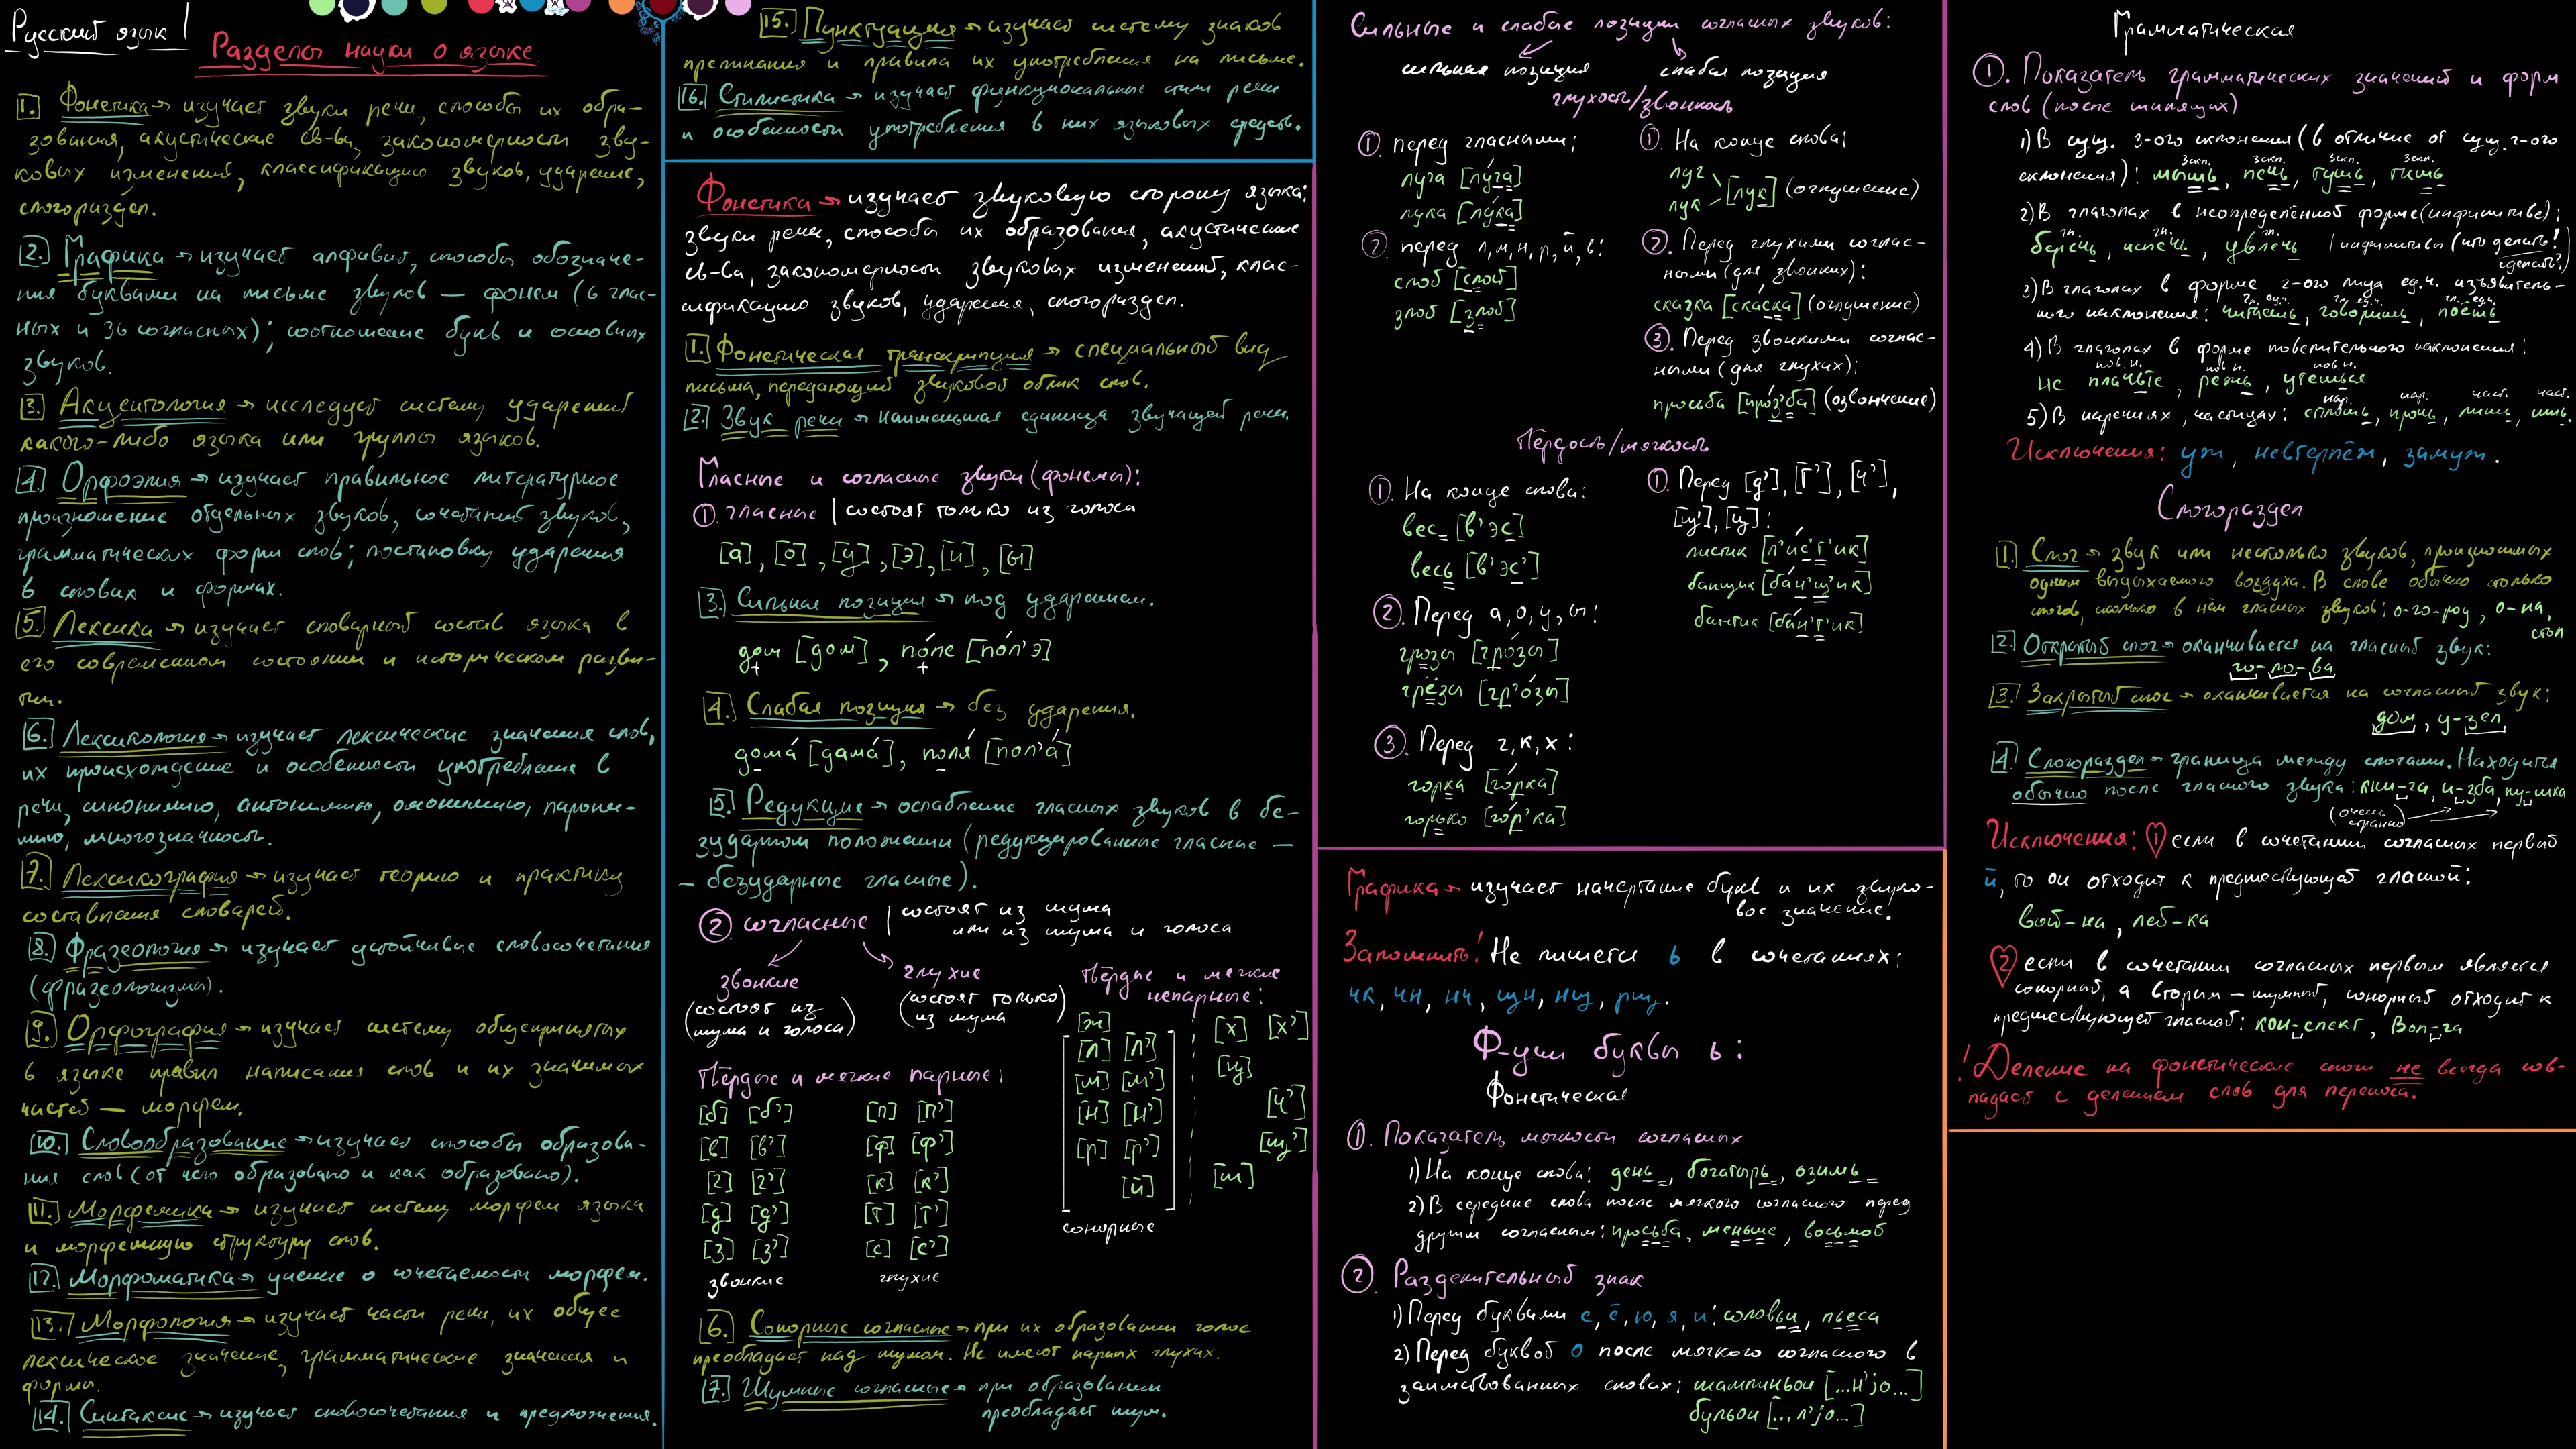 Русский язык
Разделы науки о языке.
1. Фонетика → изучает звуки речи, способы их обра-
зования, акустические св-ва, закономерности зву-
ковых изменений, классификацию звуков, ударение,
слогораздел.
2. Графика → изучает алфавит, способы обозначе-
ния буквами на письме звуков — фонем (6 глас-
ных и 36 согласных); соотношение букв и основных
звуков.
3. Акцентология → исследует систему ударений
какого-либо языка или группы языков.
4. Орфоэпия → изучает правильное литературное
произношение отдельных звуков, сочетаний звуков,
грамматических форм слов; постановку ударения
в словах и формах.
5. Лексика → изучает словарный состав языка в
его современном состоянии и историческом разви-
тии.
6. Лексикология → изучает лексические значения слов,
их происхождение и особенности употребления в
речи, синонимию, антонимию, омонимию, парони-
мию, многозначность.
7. Лексикография → изучает теорию и практику
составления словарей.
8. Фразеология → изучает устойчивые словосочетания
(фразеологизмы).
9. Орфография → изучает систему общепринятых
в языке правил написания слов и их значимых
частей — морфем.
10. Словообразование → изучает способы образова-
ния слов (от чего образовано и как образовано).
11. Морфемика → изучает систему морфем языка
и морфемную структуру слов.
12. Морфоматика → учение о сочетаемости морфем.
13. Морфология → изучает части речи, их общее
лексическое значение, грамматические значения и
формы.
14. Синтаксис → изучает словосочетания и предложения.
15. Пунктуация → изучает систему знаков
препинания и правила их употребления на письме.
16. Стилистика → изучает функциональные стили речи
и особенности употребления в них языковых средств.
Фонетика → изучает звуковую сторону языка:
звуки речи, способы их образования, акустические
св-ва, закономерности звуковых изменений, клас-
сификацию звуков, ударения, слогораздел.
1. Фонетическая транскрипция → специальный вид
письма, передающий звуковой облик слов.
2. Звук речи → наименьшая единица звучащей речи.
Гласные и согласные звуки (фонемы):
1. гласные | состоят только из голоса
[а], [о], [у], [э], [и], [ы]
3. Сильная позиция → под ударением.
дом [дом], по́ле [по́л'э]
4. Слабая позиция → без ударения.
дома́ [дама́], поля́ [пол'а́]
5. Редукция → ослабление гласных звуков в бе-
зударном положении (редуцированные гласные —
— безударные гласные).
2. согласные | состоят из шума
или из шума и голоса
звонкие
(состоят из
шума и голоса)
глухие
(состоят только
из шума)
Твёрдые и мягкие парные:
[б] [б'] [п] [п']
[в] [в'] [ф] [ф']
[г] [г'] [к] [к']
[д] [д'] [т] [т']
[з] [з'] [с] [с']
звонкие глухие
Твёрдые и мягкие
непарные:
[ж]
[л] [л']
[м] [м']
[н] [н']
[р] [р']
[й]
сонорные
[х] [х']
[ц]
[ч']
[щ']
[ш]
6. Сонорные согласные → при их образовании голос
преобладает над шумом. Не имеют парных глухих.
7. Шумные согласные → при образовании
преобладает шум.
Сильные и слабые позиции согласных звуков:
сильная позиция слабая позиция
глухость/звонкость
1. перед гласными:
луга [луга]
лука [лука]
2. перед л, м, н, р, й, в:
слоб [слоб]
злоб [злоб]
1. На конце слова:
луг
лук [лук] (оглушение)
2. Перед глухими соглас-
ными (для звонких):
сказка [скаска] (оглушение)
3. Перед звонкими соглас-
ными (для глухих):
просьба [про́з'ба] (озвончение)
Твёрдость/мягкость
1. На конце слова:
вес [в'эс]
весь [в'эс']
2. Перед а, о, у, ы:
грозы [гро́зы]
грёзы [гр'о́зы]
3. Перед г, к, х:
горка [го́рка]
горько [го́р'ка]
1. Перед [д'], [т'], [ч'],
[щ'], [ц]:
листик [л'и́с'т'ик]
банщик [ба́н'щ'ик]
бантик [ба́н'т'ик]
Графика → изучает начертание букв и их звуко-
вое значение.
Запомнить! Не пишется ь в сочетаниях:
чк, чн, нч, щн, нщ, рщ.
Ф-ции буквы ь:
Фонетическая
1. Показатель мягкости согласных
1) На конце слова: день, богатырь, озимь
2) В середине слова после мягкого согласного перед
другим согласным: просьба, меньше, восьмой
2. Разделительный знак
1) Перед буквами е, ё, ю, я, и: соловьи, пьеса
2) Перед буквой о после мягкого согласного в
заимствованных словах: шампиньон [...н'jо...]
бульон [...л'jо...]
Грамматическая
1. Показатель грамматических значений и форм
слов (после шипящих)
1) В сущ. 3-ого склонения (в отличие от сущ. 2-ого
3 скл. 3 скл. 3 скл. 3 скл.
склонения): мышь, печь, тушь, тишь
2) В глаголах в неопределённой форме (инфинитиве):
гл. гл. гл.
беречь, испечь, увлечь | инфинитивы (что делать?
сделать?)
3) В глаголах в форме 2-ого лица ед.ч. изъявитель-
гл. ед.ч. гл. ед.ч. гл. ед.ч.
ного наклонения: читаешь, говоришь, поёшь
4) В глаголах в форме повелительного наклонения:
пов.н. пов.н. пов.н.
не плачьте, режь, утешься
нар. нар. част. част.
5) В наречиях, частицах: сплошь, прочь, лишь, ишь.
Исключения: уж, невтерпёж, замуж.
Слогораздел
1. Слог → звук или несколько звуков, произносимых
одним выдыхаемого воздуха. В слове обычно столько
слогов, сколько в нём гласных звуков: о-го-род, о-на,
стол
2. Открытый слог → оканчивается на гласный звук:
го-ло-ва
3. Закрытый слог → оканчивается на согласный звук:
дом, у-зел
4. Слогораздел → граница между слогами. Находится
обычно после гласного звука: кни-га, и-зба, пу-шка
(очень
странно)
Исключения: 1 если в сочетании согласных первый
й, то он отходит к предшествующей гласной:
вой-на, лей-ка
2 если в сочетании согласных первым является
сонорный, а вторым — шумный, сонорный отходит к
предшествующей гласной: кон-спект, Вол-га
! Деление на фонетические слоги не всегда сов-
падает с делением слов для переноса.